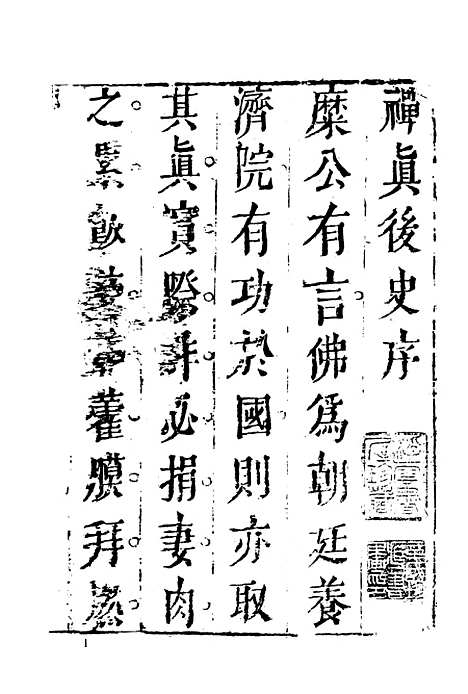 禪真後史序
糜公有言佛爲朝廷養
濟院有功於國則亦取
其眞實黔非必捐妻肉
之累飲藿膜拜